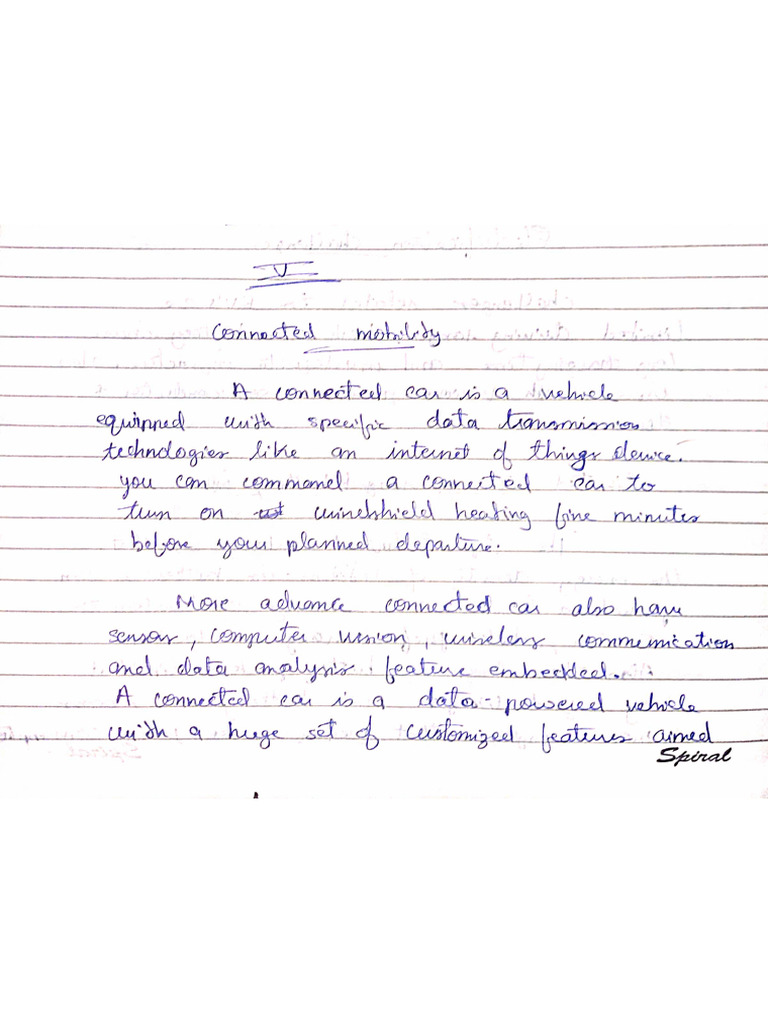 V
Connected mobility
A connected car is a vehicle
equipped with specific data transmission
technologies like an internet of things device.
you can command a connected car to
turn on windshield heating five minutes
before your planned departure.
More advance connected car also have
sensor, computer vision, wireless communication
and data analysis feature embedded.
A connected car is a data-powered vehicle
with a huge set of customized features aimed
Spiral